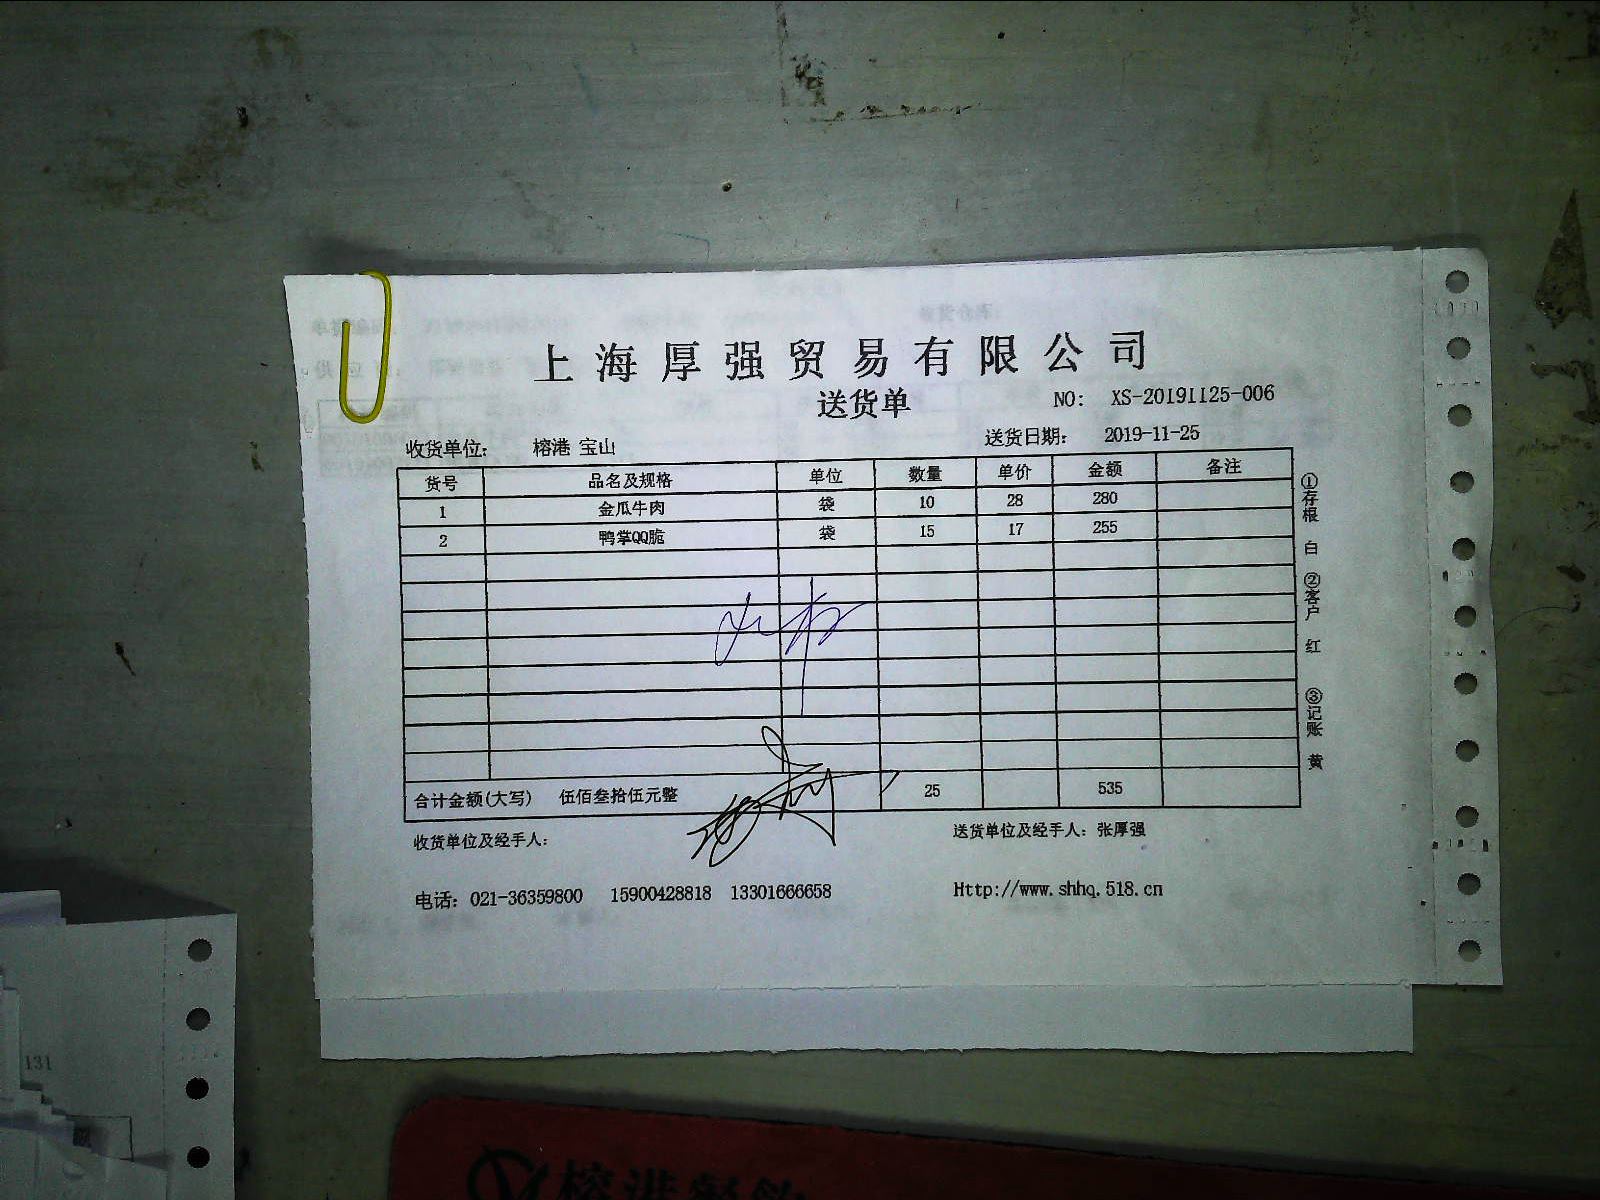 上海厚强贸易有限公司
送货单
NO: XS-20191125-006
收货单位: 榕港 宝山
送货日期: 2019-11-25
货号 品名及规格 单位 数量 单价 金额 备注
1 金瓜牛肉 袋 10 28 280
2 鸭掌QQ脆 袋 15 17 255
合计金额(大写) 伍佰叁拾伍元整 25 535
收货单位及经手人:
送货单位及经手人: 张厚强
电话: 021-36359800 15900428818 13301666658
Http://www.shhq.518.cn
①存根 白 ②客户 红 ③记账 黄
131
榕港餐饮